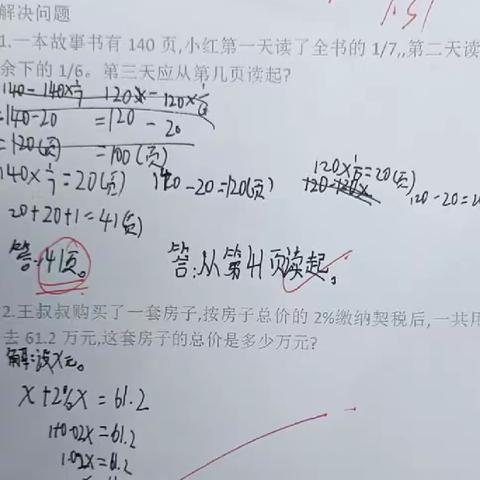 解决问题
1.一本故事书有 140 页,小红第一天读了全书的 1/7,,第二天读
余下的 1/6。第三天应从第几页读起?
140-140×1/7 120x-120×1/6
=140-20 =120-20
=120(页) =100(页)
140×1/7=20(页) 140-20=120(页) 120×1/6=20(页)
120-20=
20+20+1=41(页)
答:41页。 答:从第41页读起。
2.王叔叔购买了一套房子,按房子总价的 2%缴纳契税后,一共用
去 61.2 万元,这套房子的总价是多少万元?
解:设X元。
X+2%X=61.2
1+0.02X=61.2
1.02X=61.2